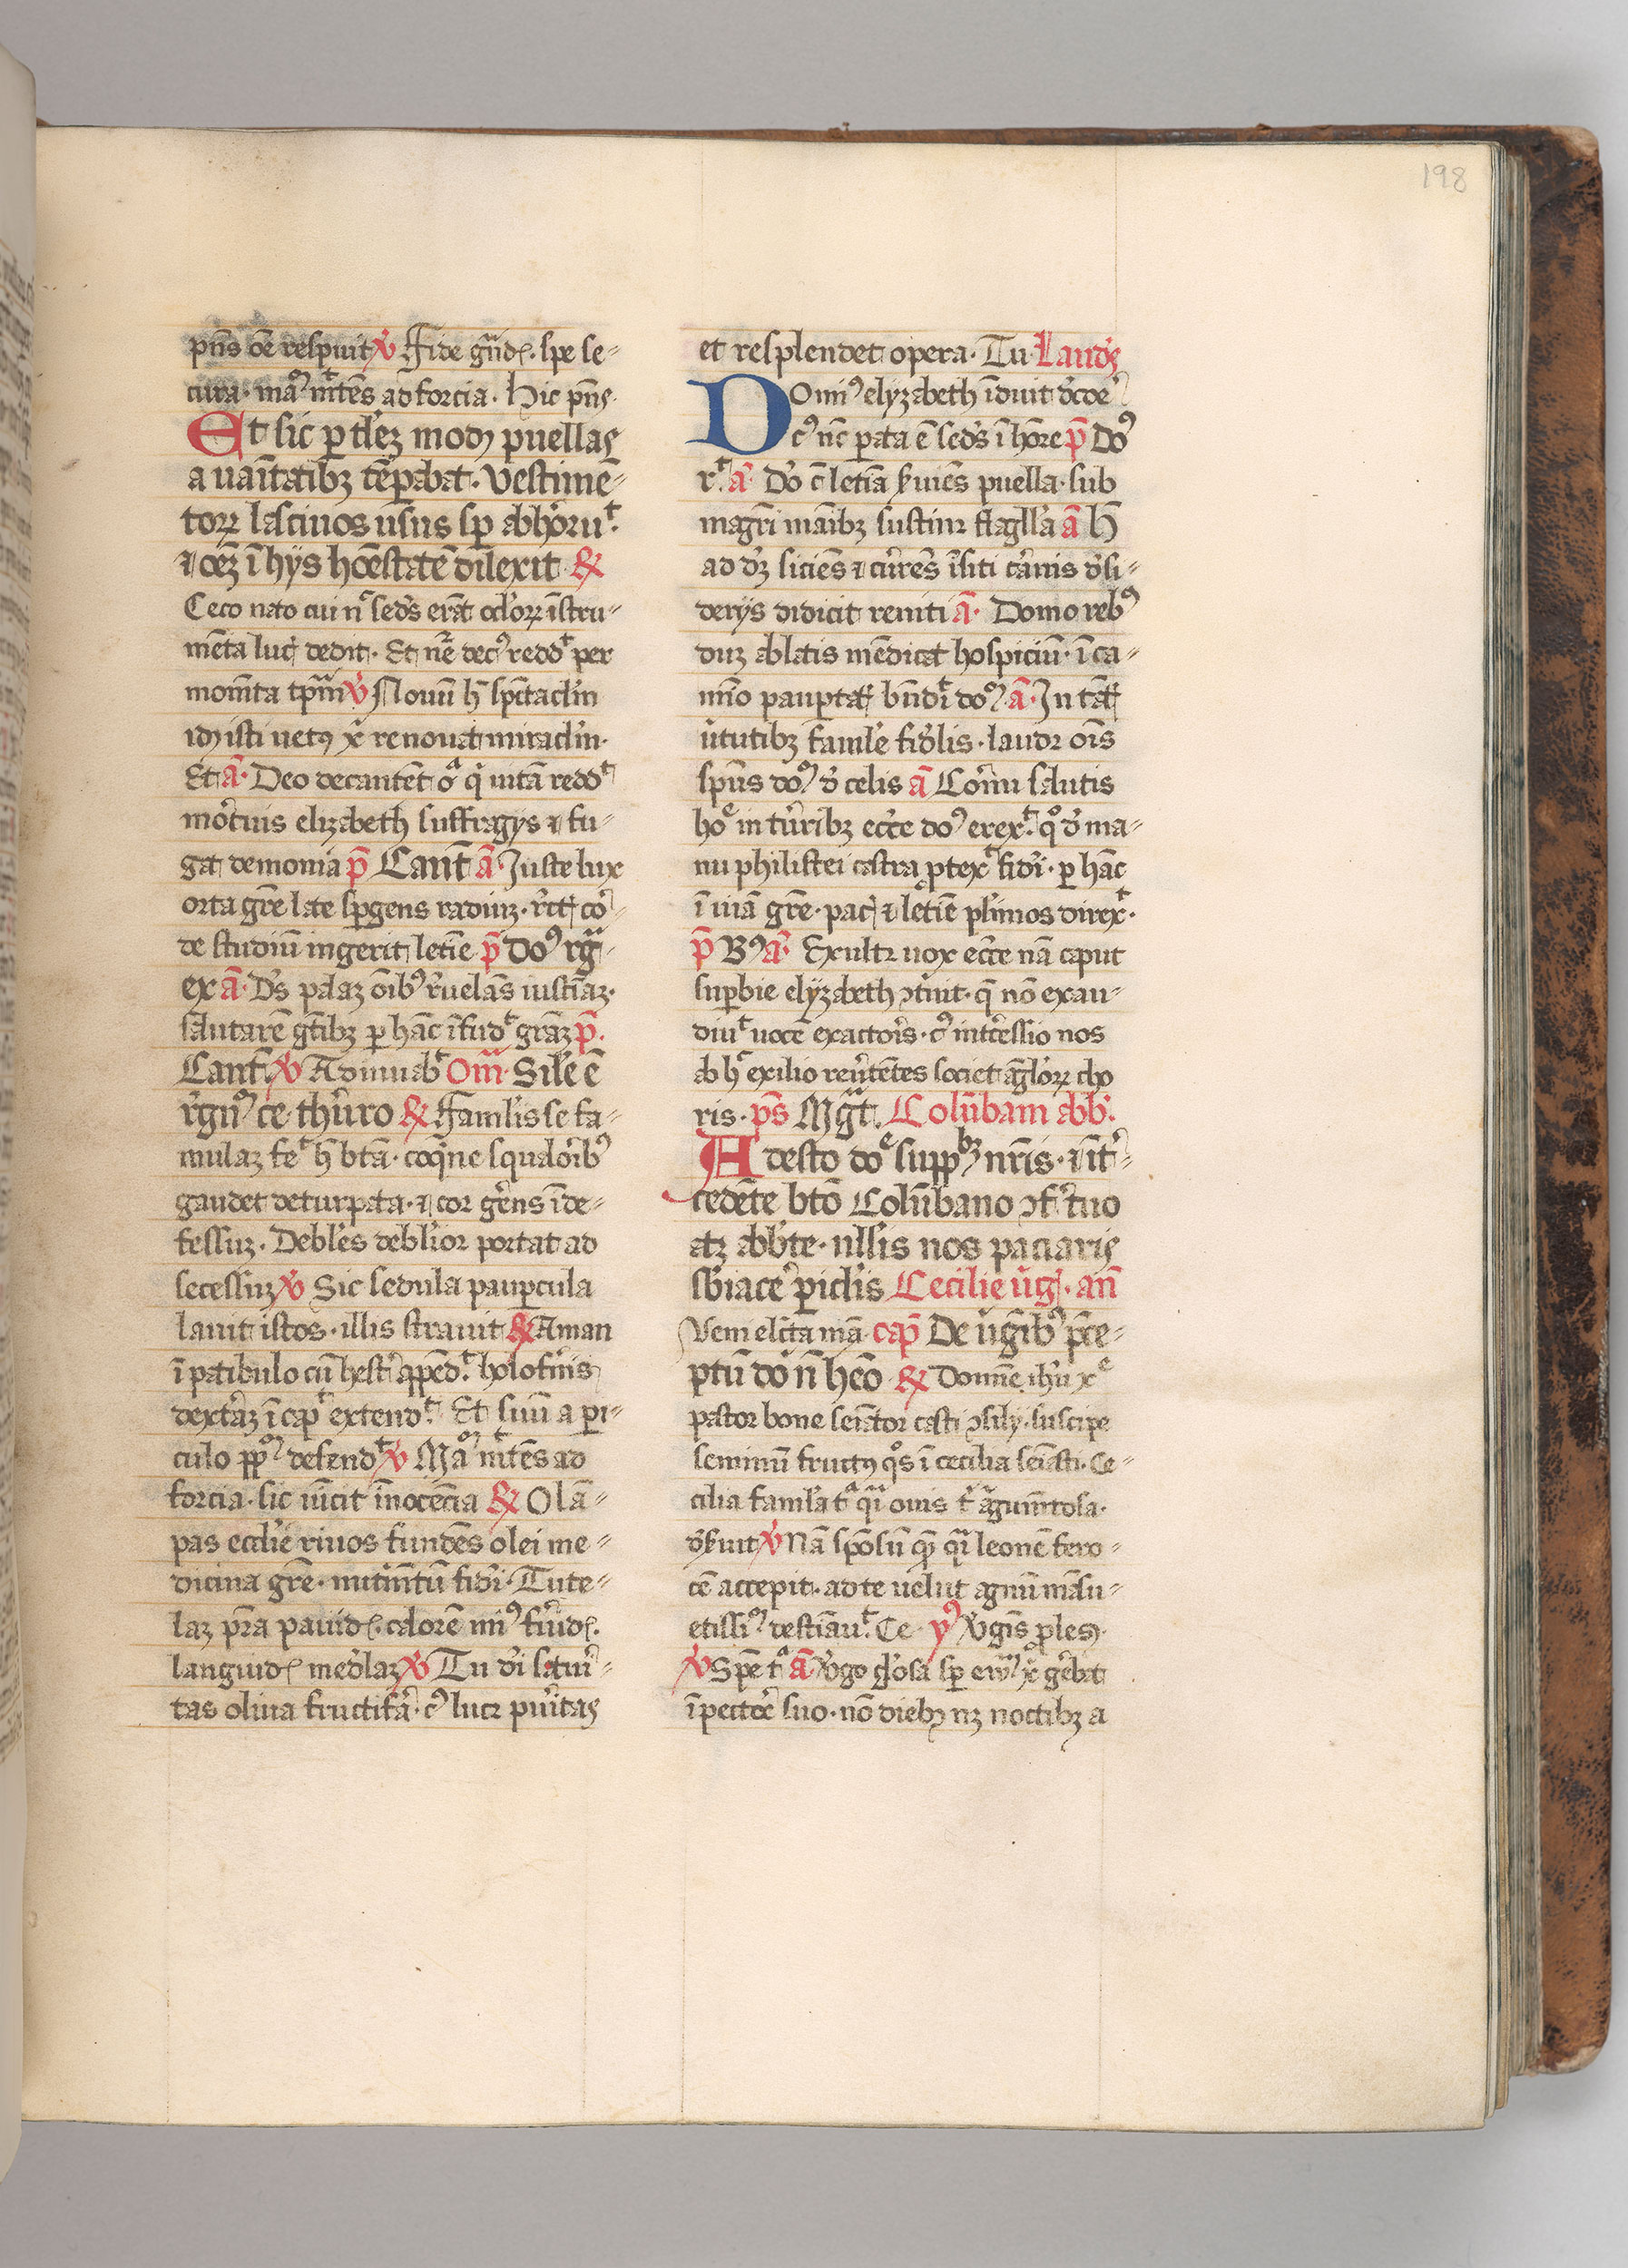 198
pn̄s oē respuit ꝟ Fide gn̄d. spe se-
cura. maꝰ mt̄ēs ad forcia. Hic pn̄s
Et sic ꝑ tlez modū puellas
a uaītatibꝫ tēꝑabat. Vestimē-
torꝝ lasciuos usus sꝑ abhoruᵗ.
⁊ oēꝫ ī hys hōestatē dilexit ℟
Ceco nato cui nᶜ sed's erāt oclorꝝ īstru-
mēta luc dedit. Et nr̄e decꝰ reddᵗ per
momēta tp̄m ꝟ Nouū h̄ spectaclm
idisti uetꝰ xp̄ renouat miraclm.
Et ā. Deo decantēt oᵃ qͥ uitā reddᵗ
mortuis elizabeth suffragys ⁊ fu-
gat demonia p̄ Cant̄ ā. Iuste lux
orta gr̄e late spgens radiuꝫ. rct cor-
de studiū ingerit letic̄e p̄ Doꝰ rg-
ex ā. D's palaꝫ oībꝰ reuelās iustic̄iaꝫ.
salutarē gētibꝫ ꝑ hāc īfudᵗ grāꝫ p̄.
Cant̄ ꝟ Adiuuabᵗ Om̄ Sile ē
rgnꝰ ce. thuro ℟ Famlis se fa-
mulaꝫ feᶜ h̄ btā. coqne squaloribꝰ
gaudet deturpata. ⁊ cor gerens īde-
fessuꝫ. Debles deblior portat ad
secessuꝫ ꝟ Sic sedula pauꝑcula
lauit istos. illis strauit ℟ Aman
ī patibulo cū hester appēdᵗ. holofernis
dexteraꝫ ī capᵗ extendᵗ. Et suū a ꝑi-
culo ppꝉm defendᵗ ꝟ Maꝰ mt̄ēs ad
forcia. sic uīcit īnocēcia ℟ O lā-
pas eccl'ie riuos fundēs olei me-
dicina gr̄e. nutm̄tū fidi. Tute-
laꝫ pr̄a pauid. calorē miꝰ feruid.
languid medelaꝫ ꝟ Tu di satur-
tas oliua fructifera. cꝰ lucꝫ puritas
et resplendet opera. Tu Lauds
Domꝰ elyzabeth īduit d'coē
cꝰ nc̄ ꝑata ē sed's ī hōre p̄ Doꝰ
rᵗ ā Do c̄ letic̄ia s'uiēs puella. sub
magr̄i manibꝫ sustinꝫ flagella ā H̄
ad d'ꝫ siciēs ⁊ cur̄ēs īsiti carnis d'si-
derys didicit reniti ā. Domo rebꝰ
duꝫ ablatis mēdicat hospiciū. ī ca-
mīo paupertat bn̄diᵗ doꝰ ā. In tāt
ututibꝫ famle fidelis. laudꝫ ois
spūs doꝰ d' celis ā Cornu salutis
hoᵉ in turribꝫ eccle doꝰ erexᵗ. qᵒ d' ma-
nu philistei castra ꝓtexᵗ fidi. ꝑ hāc
ī uiā gr̄e. pac ⁊ letic̄e plimos direxᵗ.
p̄ Bꝰ ā. Exultꝫ uox eccle nā caput
suꝑbie elyzabeth ↄtriuit. q̄ nō exau-
diuᵗ uocē exactoris. cꝰ intercessio nos
ab hᶜ exilio reuertētes societ āglorꝝ cho
ris. p̄s Mgt̄. Colūbani abb'.
Adesto doᵉ suppꝫ nr̄is. ⁊ īt'-
cedēte btō Colūbano ↄf' tuo
atꝫ abb'te. nllis nos paciaris
sbiace' ꝑiclis Cecilie ūg. an̄
Veni elc̄ta mā cap̄ De ūgībꝰ p̄ce-
ptū do n̄ heō ℟ Domīe ihū xᵉ
pastor bone seīator casti ↄsily. suscipe
seminū fructꝰ qᵒs ī cecilia seīasti. Ce-
cilia famla tᵃ qᵃi ouis tᵇ argumētosa.
d's'uit ꝟ Nā spōsū quē qᵃi leonē fero-
cē accepit. ad te uelut agnū māsu-
etissiꝰ destīauᵗ. Ce yꝰ Vgīs ꝓles
ꝟ Spē tᵃ ā Vgo glosa sꝑ ewꝰ xͥ gerebat
ī pectore suo. nō diebꝰ nꝫ noctibꝫ a